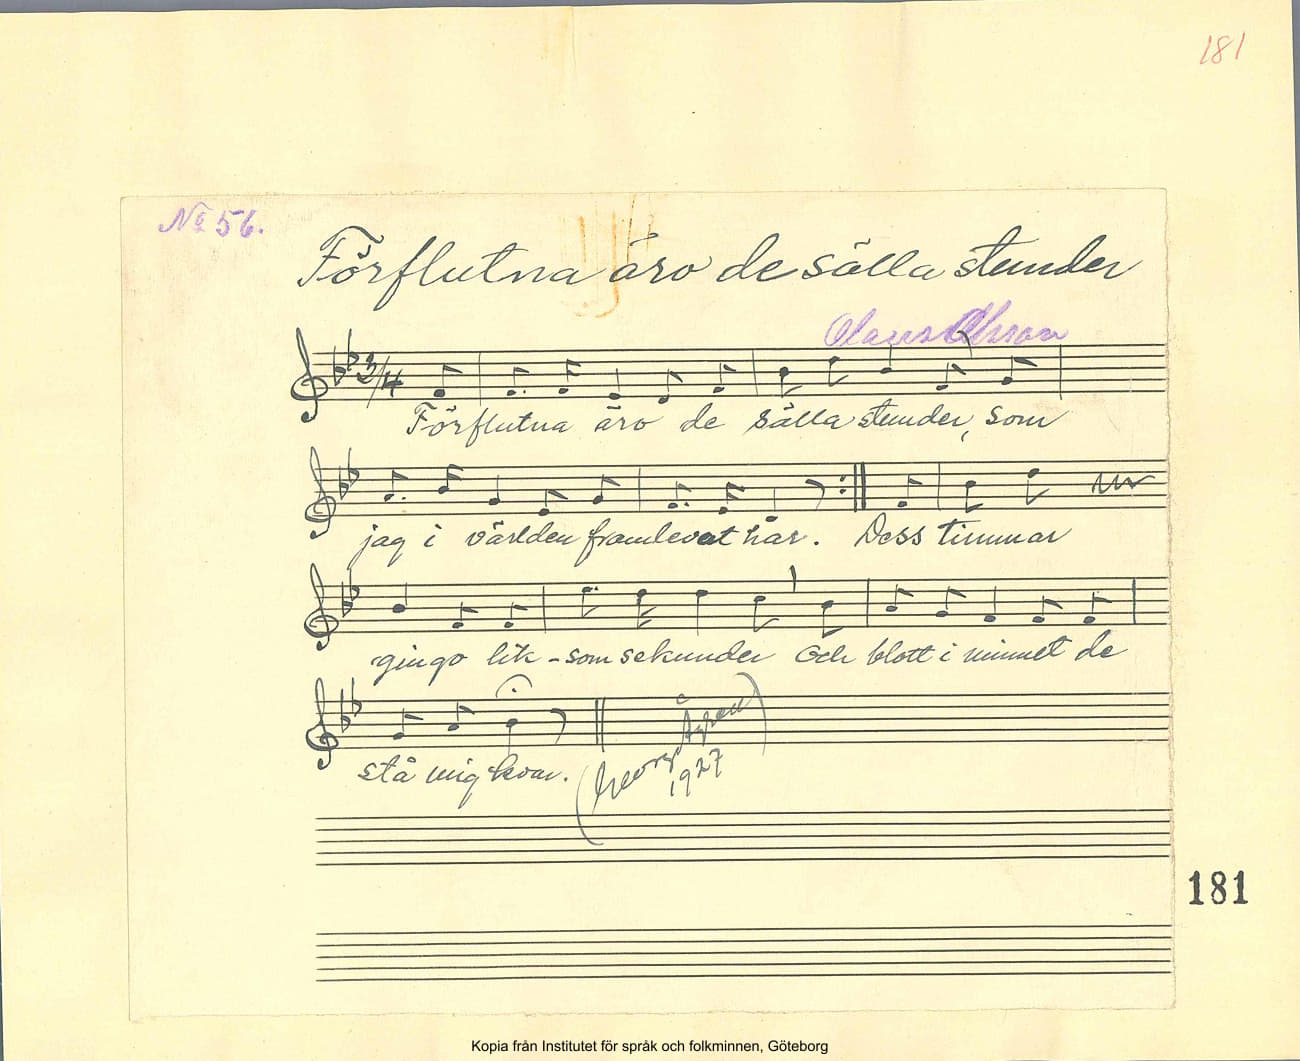 181
No 56.
Förflutna äro de sälla stunder
Olaus Olsson
3/4
Förflutna äro de sälla stunder, som
jag i världen framlevat har. Dess timmar
gingo lik-som sekunder och blott i minnet de
stå mig kvar.
(Georg Ågren)
1927
181
Kopia från Institutet för språk och folkminnen, Göteborg